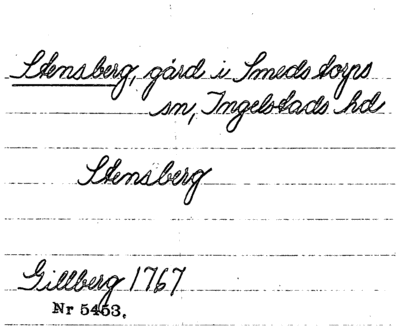 Stensberg, gård i Smedstorps
sn, Ingelstads hd
Stensberg
Gillberg 1767
Nr 5453.